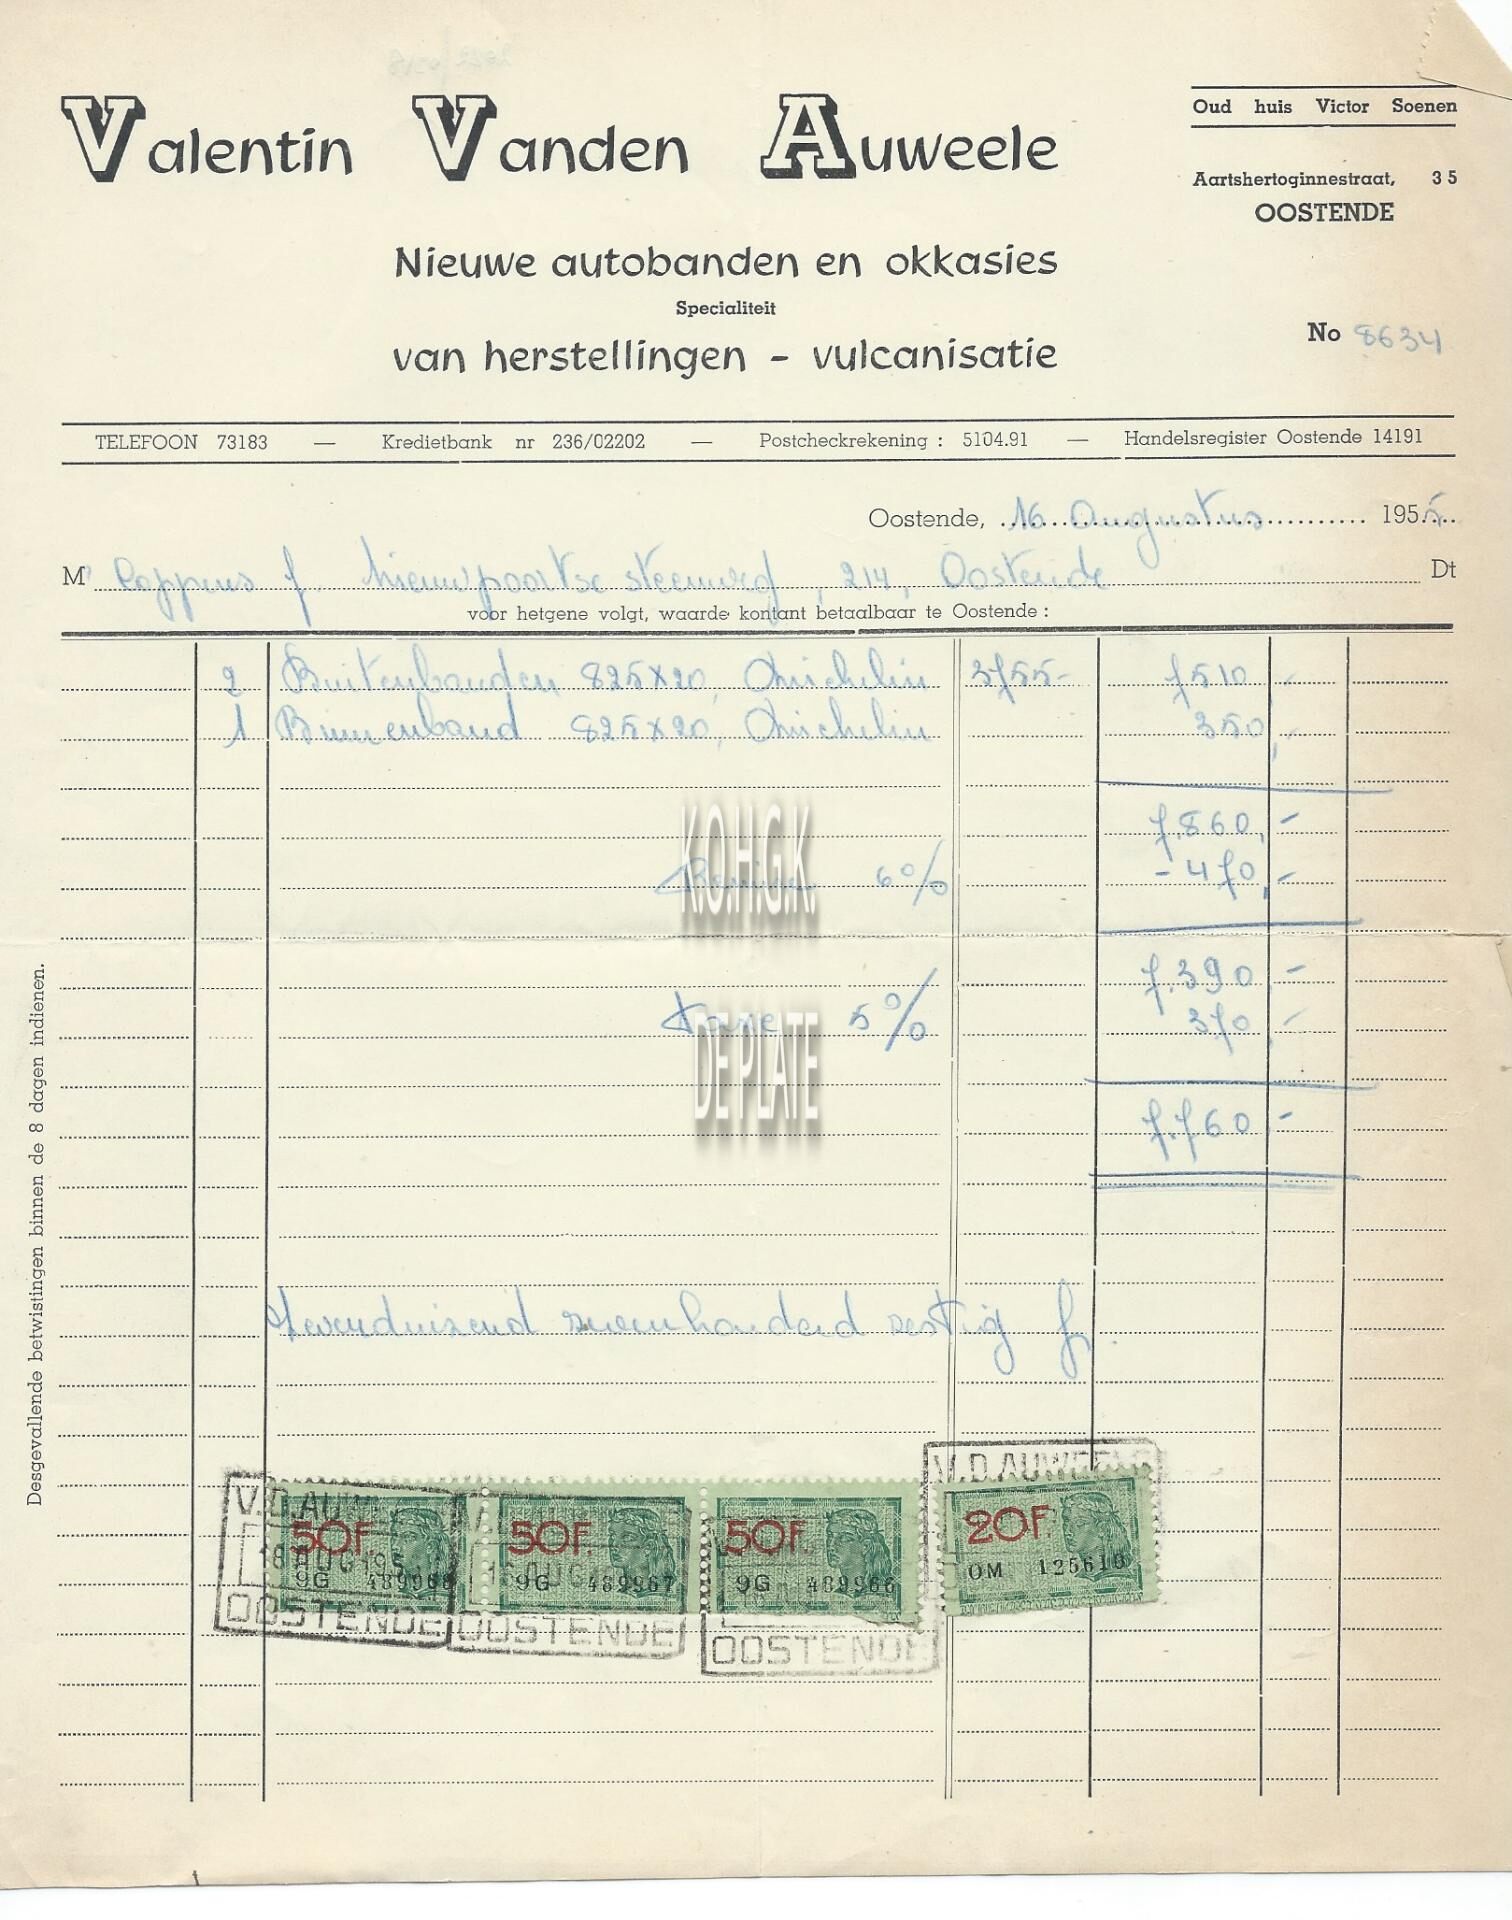 Valentin Vanden Auweele
Oud huis Victor Soenen
Aartshertoginnestraat, 35
OOSTENDE
Nieuwe autobanden en okkasies
Specialiteit
van herstellingen - vulcanisatie
No 8634
TELEFOON 73183 — Kredietbank nr 236/02202 — Postcheckrekening : 5104.91 — Handelsregister Oostende 14191
Oostende, 16 Augustus 1955
Mr Coppens f. Nieuwpoortse steenweg, 214, Oostende Dt
voor hetgene volgt, waarde kontant betaalbaar te Oostende :
2 Buitenbanden 825x20, Michelin 3755- 7510,-
1 Binnenband 825x20, Michelin 350,-
7.860,-
Remise 6% -470,-
7.390,-
Taxe 5% 370,-
7.760,-
zevenduizend zevenhonderd zestig f.
Desgevallende betwistingen binnen de 8 dagen indienen.
K.O.H.G.K.
DE PLATE
V.D.AUW
50F.
16 AUG 195
9G 489968
OOSTENDE
50F.
16 AUG
9G 489967
OOSTENDE
50F.
9G 489966
OOSTENDE
V.D.AUWEELE
20F.
OM 125610